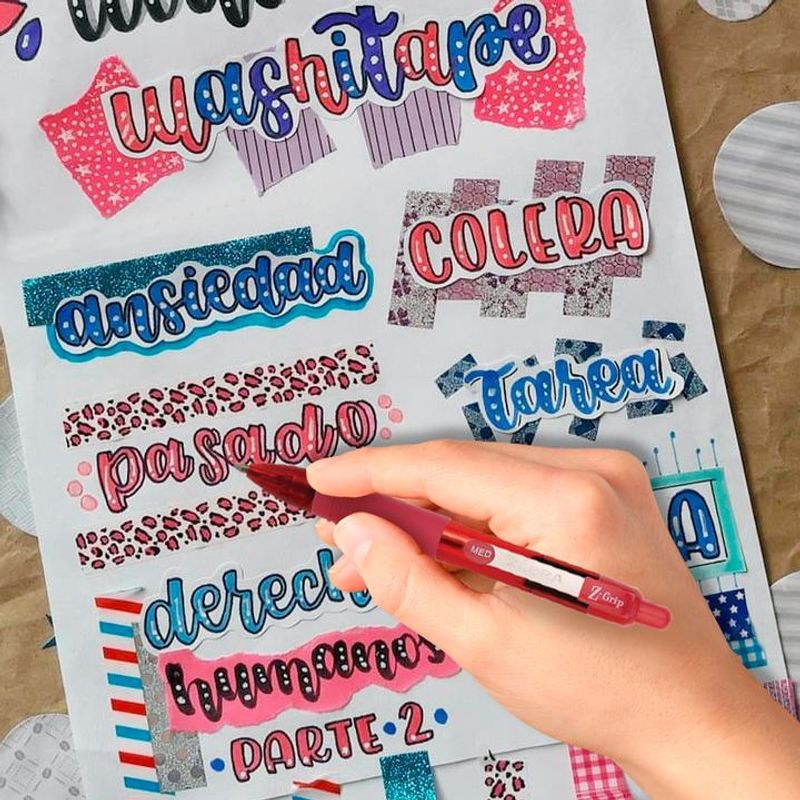 washitape
COLERA
ansiedad
tarea
pasado
MED
ZEBRA
Z-Grip
humanos
PARTE 2